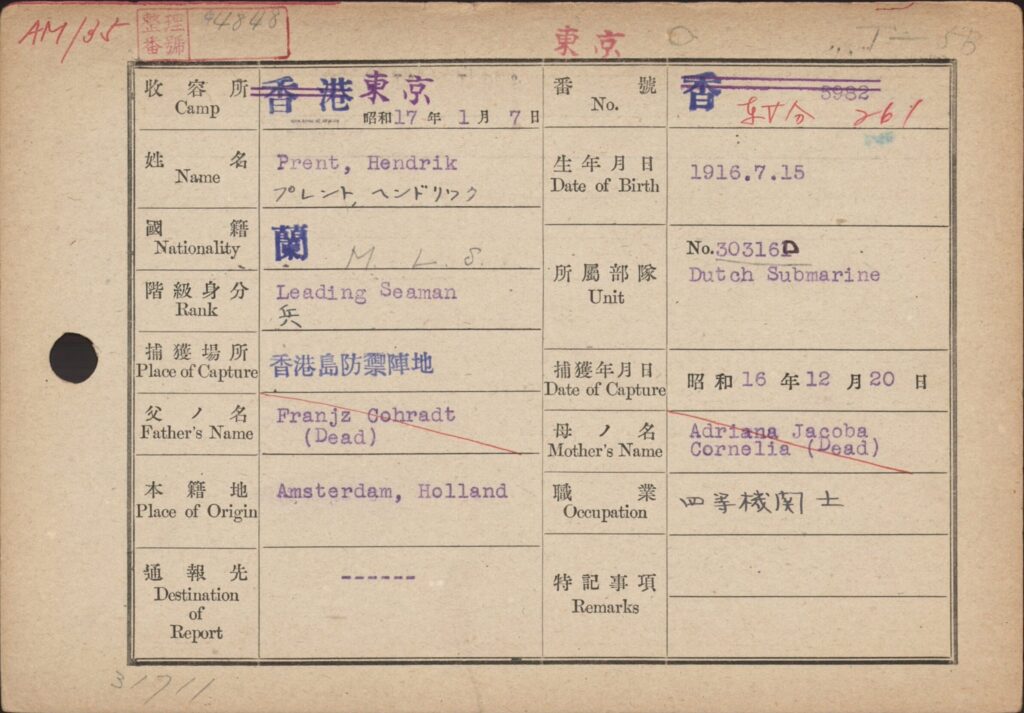 AM/35
整理
番號
4848
東京
收容所
Camp
香港 東京
昭和17年1月7日
番號
No.
香
8982
261
姓名
Name
Prent, Hendrik
プレント、ヘンドリック
生年月日
Date of Birth
1916.7.15
國籍
Nationality
蘭
M. L. S.
所屬部隊
Unit
No.30316D
Dutch Submarine
階級身分
Rank
Leading Seaman
兵
捕獲場所
Place of Capture
香港島防禦陣地
捕獲年月日
Date of Capture
昭和16年12月20日
父ノ名
Father's Name
Franjz Cohradt
(Dead)
母ノ名
Mother's Name
Adriana Jacoba
Cornelia (Dead)
本籍地
Place of Origin
Amsterdam, Holland
職業
Occupation
四等機関士
通報先
Destination
of
Report
------
特記事項
Remarks
31711